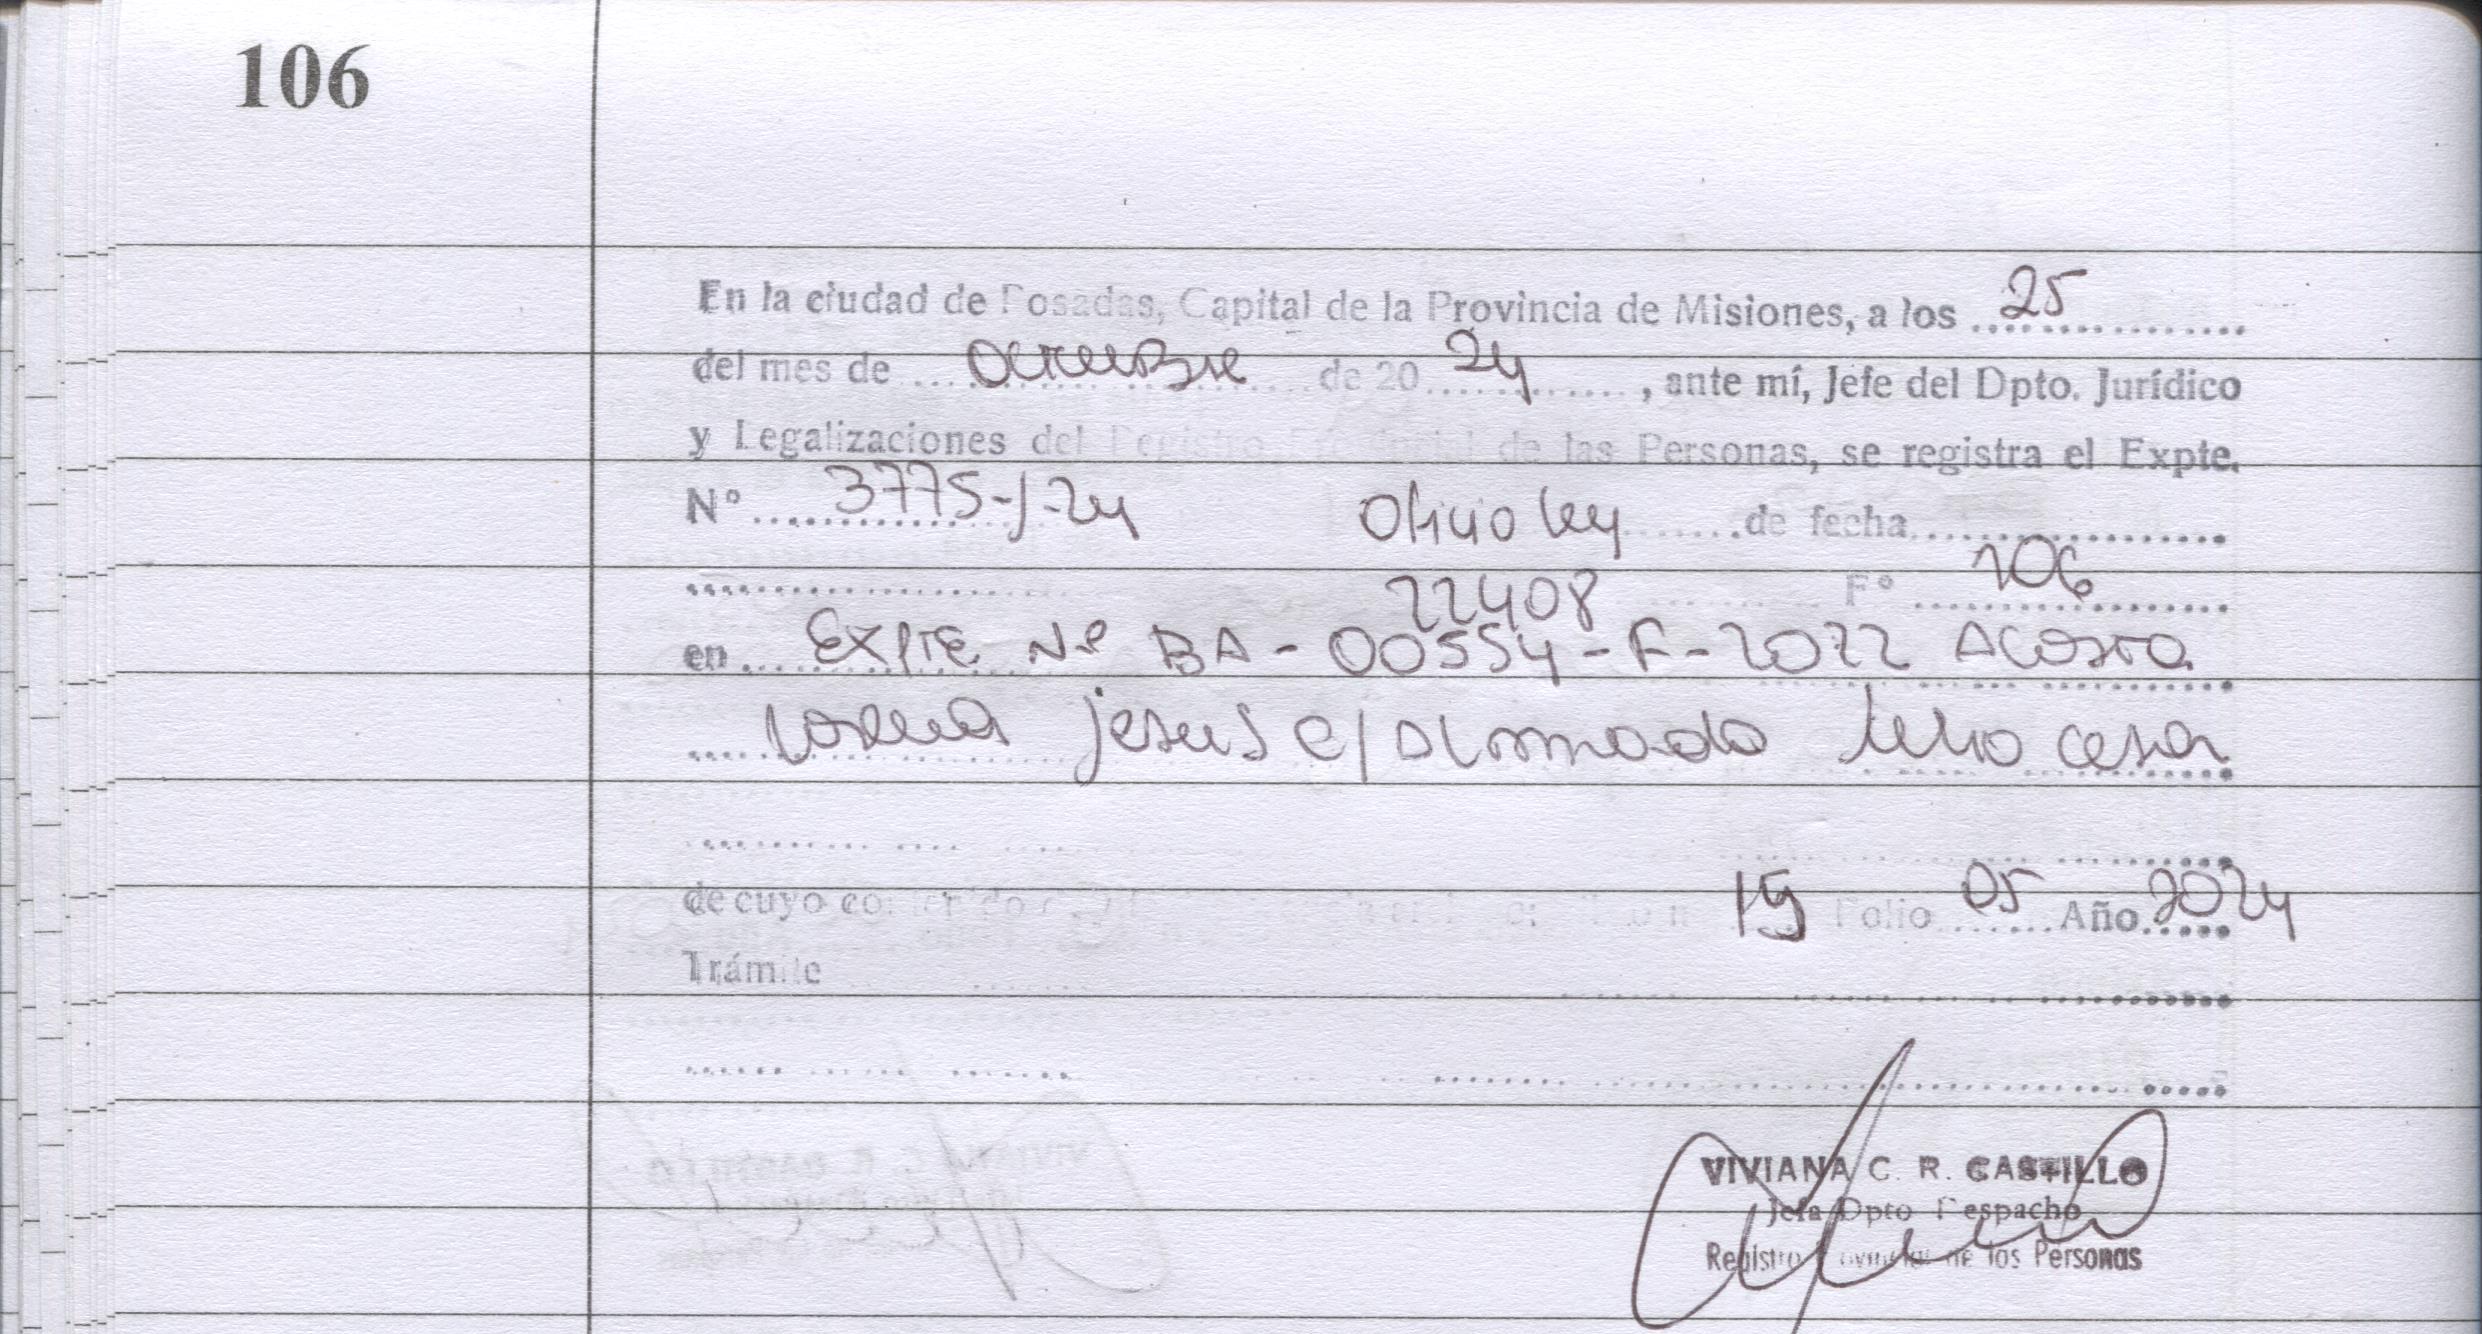 106
En la ciudad de Posadas, Capital de la Provincia de Misiones, a los 25
del mes de octubre de 20 24, ante mí, Jefe del Dpto. Jurídico
y Legalizaciones del Registro Provincial de las Personas, se registra el Expte.
Nº 3775-J-24 Oficio Ley de fecha
22408 Fº 106
en Expte Nº BA-00554-F-2022 Acosta
Lorena Jesus c/ Almada Julio Cesar
de cuyo contenido 15 Folio 05 Año 2024
Trámite
VIVIANA C. R. CASTILLO
Jefa Dpto Despacho
Registro Provincial de los Personas